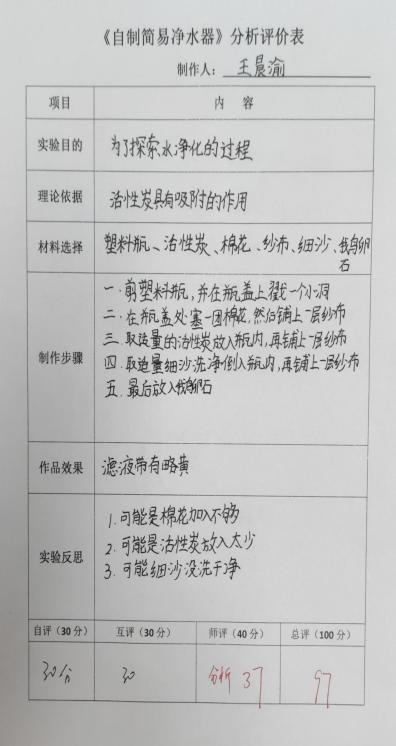 《自制简易净水器》分析评价表
制作人：王晨渝
项目 内 容
实验目的 为了探索水净化的过程
理论依据 活性炭具有吸附的作用
材料选择 塑料瓶、活性炭、棉花、纱布、细沙、鹅卵
石
制作步骤
一.剪塑料瓶,并在瓶盖上戳一个小洞
二.在瓶盖处塞一团棉花,然后铺上一层纱布
三.取适量的活性炭放入瓶内,再铺上一层纱布
四.取适量细沙洗净倒入瓶内,再铺上一层纱布
五.最后放入鹅卵石
作品效果 滤液带有略黄
实验反思
1.可能是棉花加入不够
2.可能是活性炭放入太少
3.可能细沙没洗干净
自评（30分） 互评（30分） 师评（40分） 总评（100分）
30分 30 分析 37 97